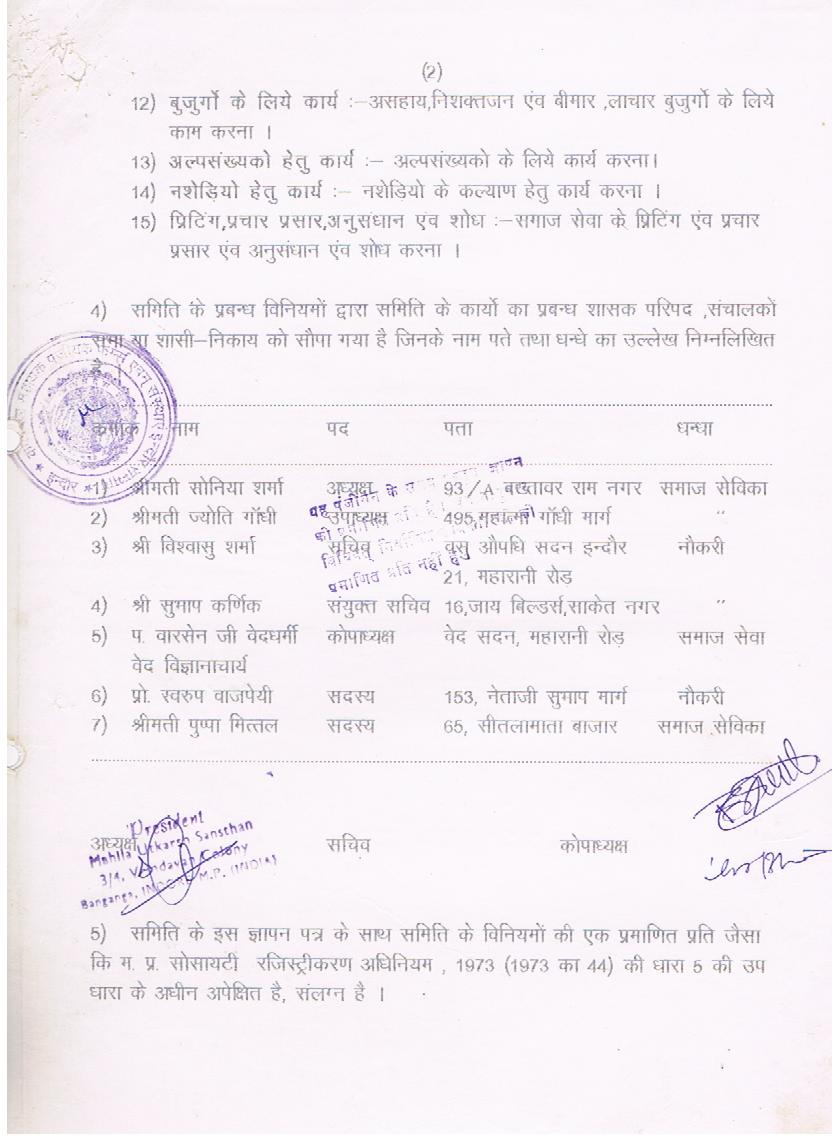 (2)
12) बुजुर्गो के लिये कार्य :–असहाय,निशक्तजन एंव बीमार ,लाचार बुजुर्गो के लिये
काम करना ।
13) अल्पसंख्यको हेतु कार्य :– अल्पसंख्यको के लिये कार्य करना।
14) नशेड़ियो हेतु कार्य :– नशेड़ियो के कल्याण हेतु कार्य करना ।
15) प्रिटिंग,प्रचार प्रसार,अनुसंधान एंव शोध :–समाज सेवा के प्रिटिंग एंव प्रचार
प्रसार एंव अनुसंधान एंव शोध करना ।
4) समिति के प्रबन्ध विनियमों द्वारा समिति के कार्यो का प्रबन्ध शासक परिपद ,संचालकों
सभा या शासी–निकाय को सौपा गया है जिनके नाम पते तथा धन्धे का उल्लेख निम्नलिखित
है
कमांक नाम पद पता धन्धा
1) श्रीमती सोनिया शर्मा अध्यक्ष 93/A बख्तावर राम नगर समाज सेविका
2) श्रीमती ज्योति गॉधी उपाध्यक्ष 495,महात्मा गॉधी मार्ग ''
3) श्री विश्वासु शर्मा सचिव वसु औपधि सदन इन्दौर नौकरी
21, महारानी रोड़
4) श्री सुमाप कर्णिक संयुक्त सचिव 16,जाय बिल्डर्स,साकेत नगर ''
5) प. वारसेन जी वेदधर्मी कोपाध्यक्ष वेद सदन, महारानी रोड़ समाज सेवा
वेद विज्ञानाचार्य
6) प्रो. स्वरुप वाजपेयी सदस्य 153, नेताजी सुमाप मार्ग नौकरी
7) श्रीमती पुप्पा मित्तल सदस्य 65, सीतलामाता बाजार समाज सेविका
यह पंजीयन के ज्ञापन
की
विधिवत्
प्रमाणित प्रति नहीं है।
President
Mahila Utkarsh Sansthan
3/4, Vrindavan Colony
Banganga, INDORE M.P. (INDIA)
अध्यक्ष सचिव कोपाध्यक्ष
5) समिति के इस ज्ञापन पत्र के साथ समिति के विनियमों की एक प्रमाणित प्रति जैसा
कि म. प्र. सोसायटी रजिस्ट्रीकरण अधिनियम , 1973 (1973 का 44) की धारा 5 की उप
धारा के अधीन अपेक्षित है, संलग्न है ।